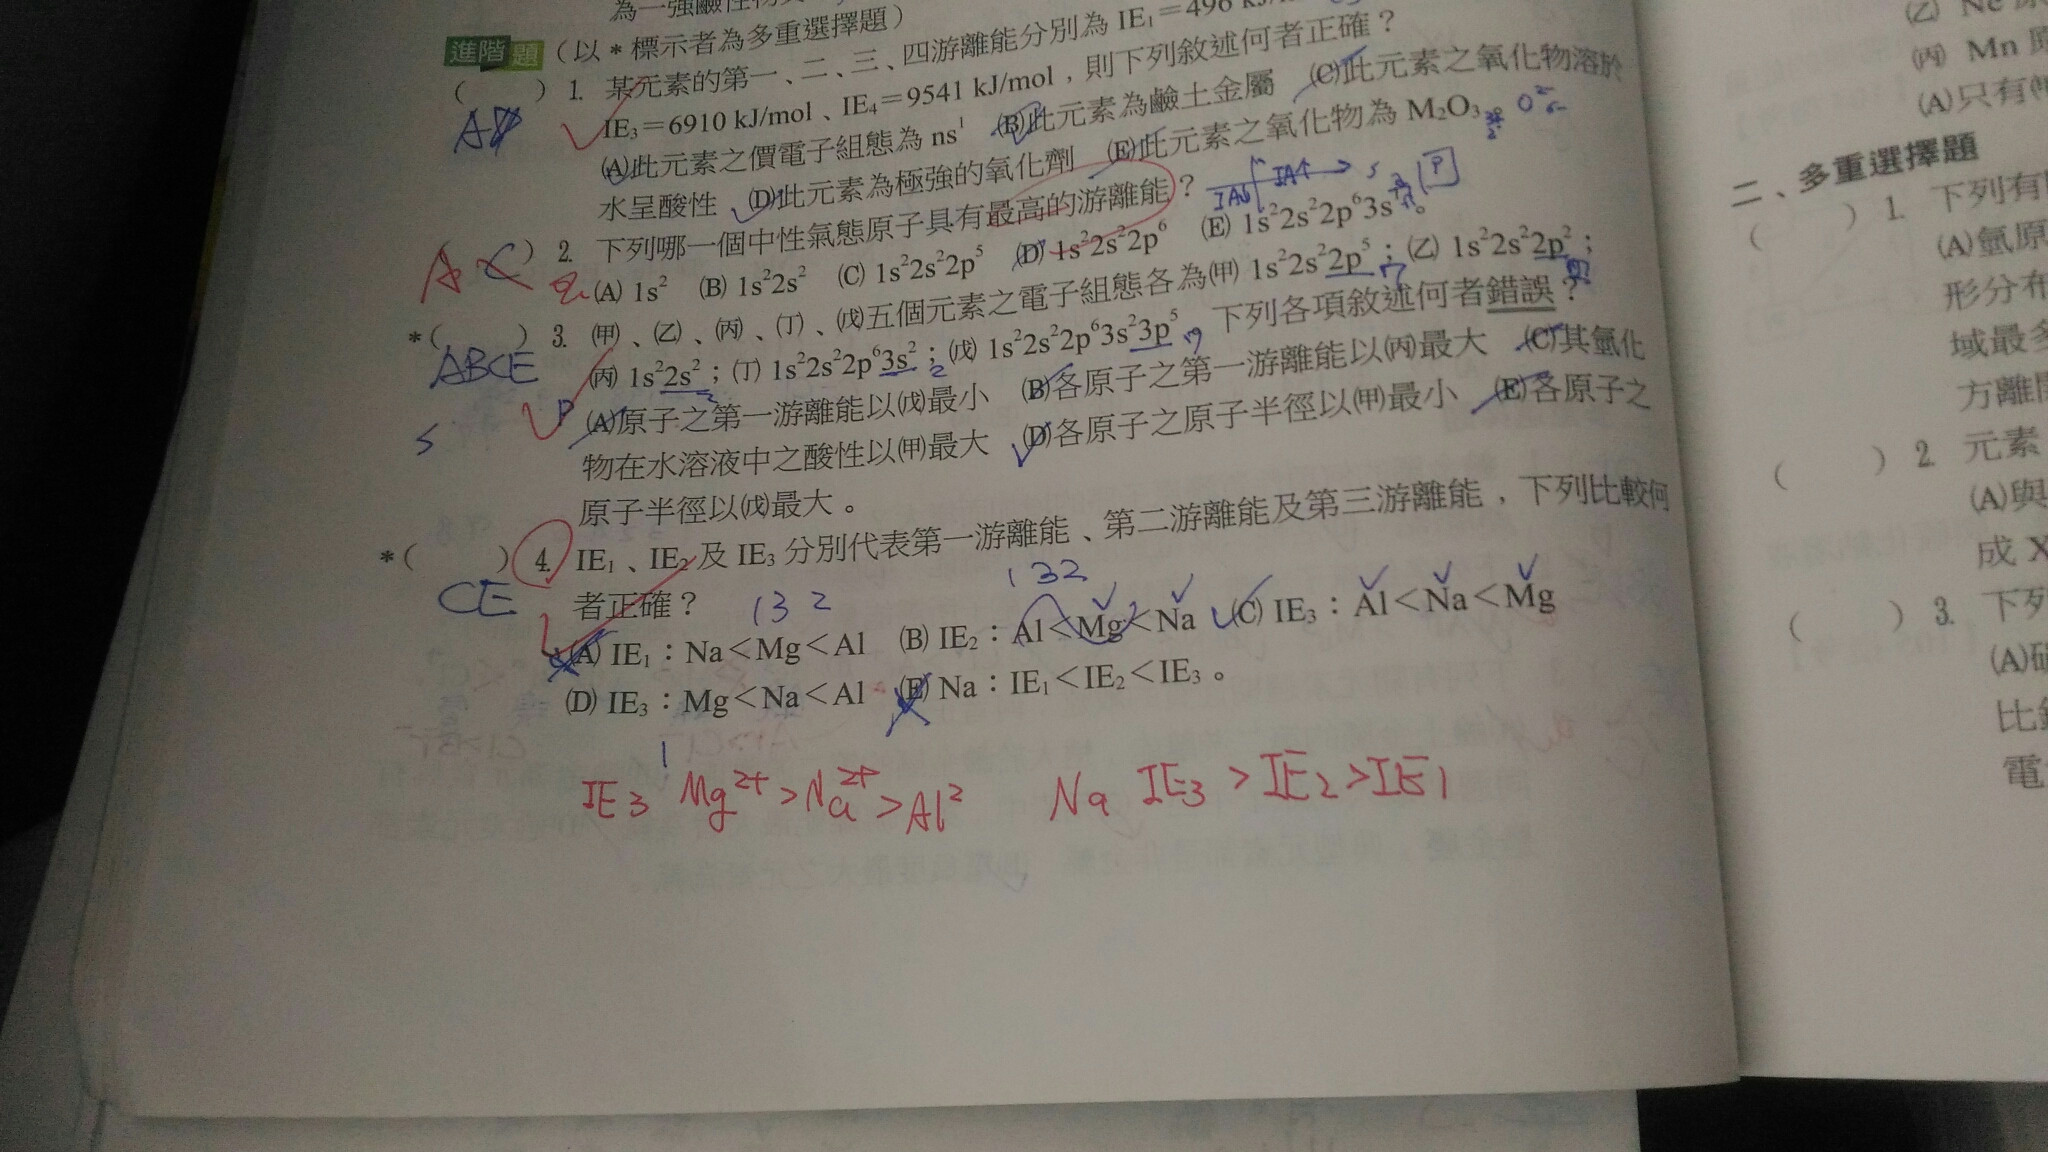 為一強鹼性物
進階題（以＊標示者為多重選擇題）
（　　）1. 某元素的第一、二、三、四游離能分別為 IE₁＝496
IE₃＝6910 kJ/mol、IE₄＝9541 kJ/mol，則下列敘述何者正確？
(A)此元素之價電子組態為 ns¹ (B)此元素為鹼土金屬 (C)此元素之氧化物溶於
水呈酸性 (D)此元素為極強的氧化劑 (E)此元素之氧化物為 M₂O₃。
（　　）2. 下列哪一個中性氣態原子具有最高的游離能？
(A) 1s² (B) 1s²2s² (C) 1s²2s²2p⁵ (D) 1s²2s²2p⁶ (E) 1s²2s²2p⁶3s
＊（　　）3. (甲)、(乙)、(丙)、(丁)、(戊)五個元素之電子組態各為(甲) 1s²2s²2p⁵；(乙) 1s²2s²2p²；
(丙) 1s²2s²；(丁) 1s²2s²2p⁶3s²；(戊) 1s²2s²2p⁶3s²3p⁵，下列各項敘述何者錯誤？
(A)原子之第一游離能以(戊)最小 (B)各原子之第一游離能以(丙)最大 (C)其氫化
物在水溶液中之酸性以(甲)最大 (D)各原子之原子半徑以(甲)最小 (E)各原子之
原子半徑以(戊)最大。
＊（　　）4. IE₁、IE₂ 及 IE₃ 分別代表第一游離能、第二游離能及第三游離能，下列比較何
者正確？
132
132
(A) IE₁：Na＜Mg＜Al (B) IE₂：Al＜Mg＜Na (C) IE₃：Al＜Na＜Mg
(D) IE₃：Mg＜Na＜Al (E) Na：IE₁＜IE₂＜IE₃。
A
A
ABCE
CE
IE3 Mg²⁺>Na²⁺>Al² Na IE3>IE2>IE1
(乙) Ne
(丙) Mn
(A)只有
二、多重選擇題
（　　）1. 下列有
(A)氫原
形分布
域最多
方離開
（　　）2. 元素
(A)與
成 X
（　　）3. 下列
(A)
比
電